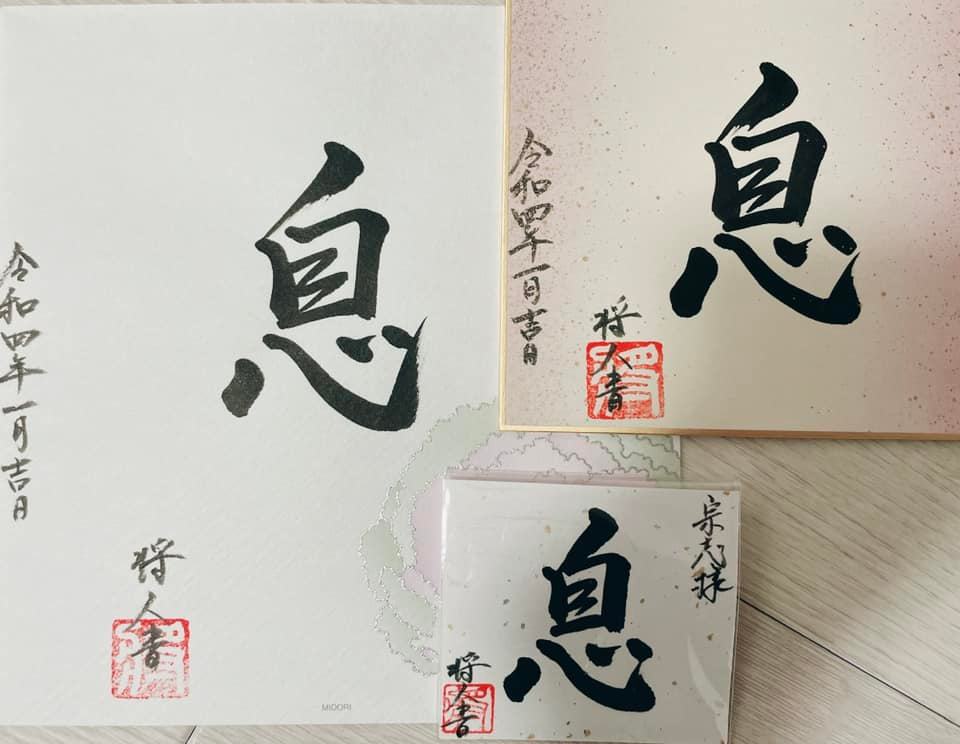 息
令和四年一月吉日
将人書
MIDORI
息
令和四年一月吉日
将人書
宗志様
息
将人書